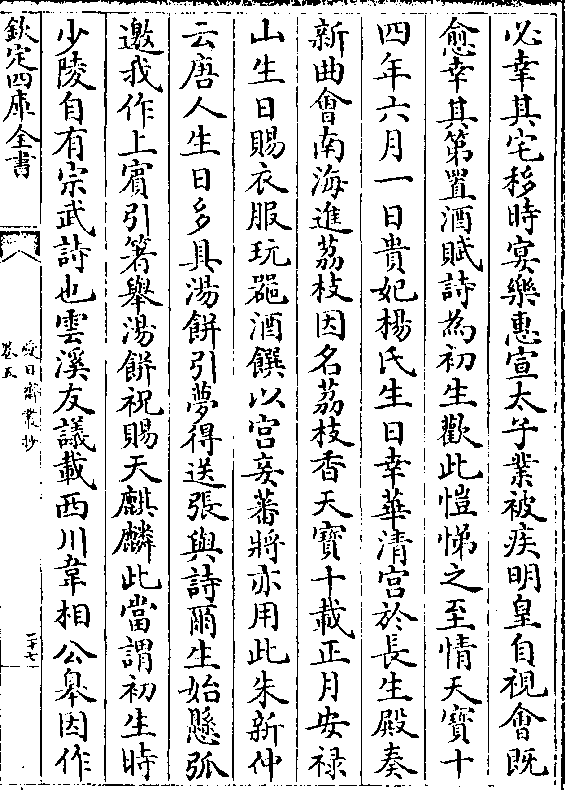 必幸其宅移時宴樂惠宣太子業被疾明皇自視㑹既
愈幸其第置酒賦詩為初生歡此愷悌之至情天寶十
四年六月一日貴妃楊氏生日幸華清宮於長生殿奏
新曲㑹南海進荔枝因名荔枝香天寶十載正月安禄
山生日賜衣服玩器酒饌以宮妾蕃將亦用此朱新仲
云唐人生日多具湯餅引夢得送張與詩爾生始懸弧
邀我作上賓引箸舉湯餅祝賜天麒麟此當謂初生時
少陵自有宗武詩也雲溪友議載西川韋相公皋因作
欽定四庫全書
愛日齋叢抄
卷五
二十七